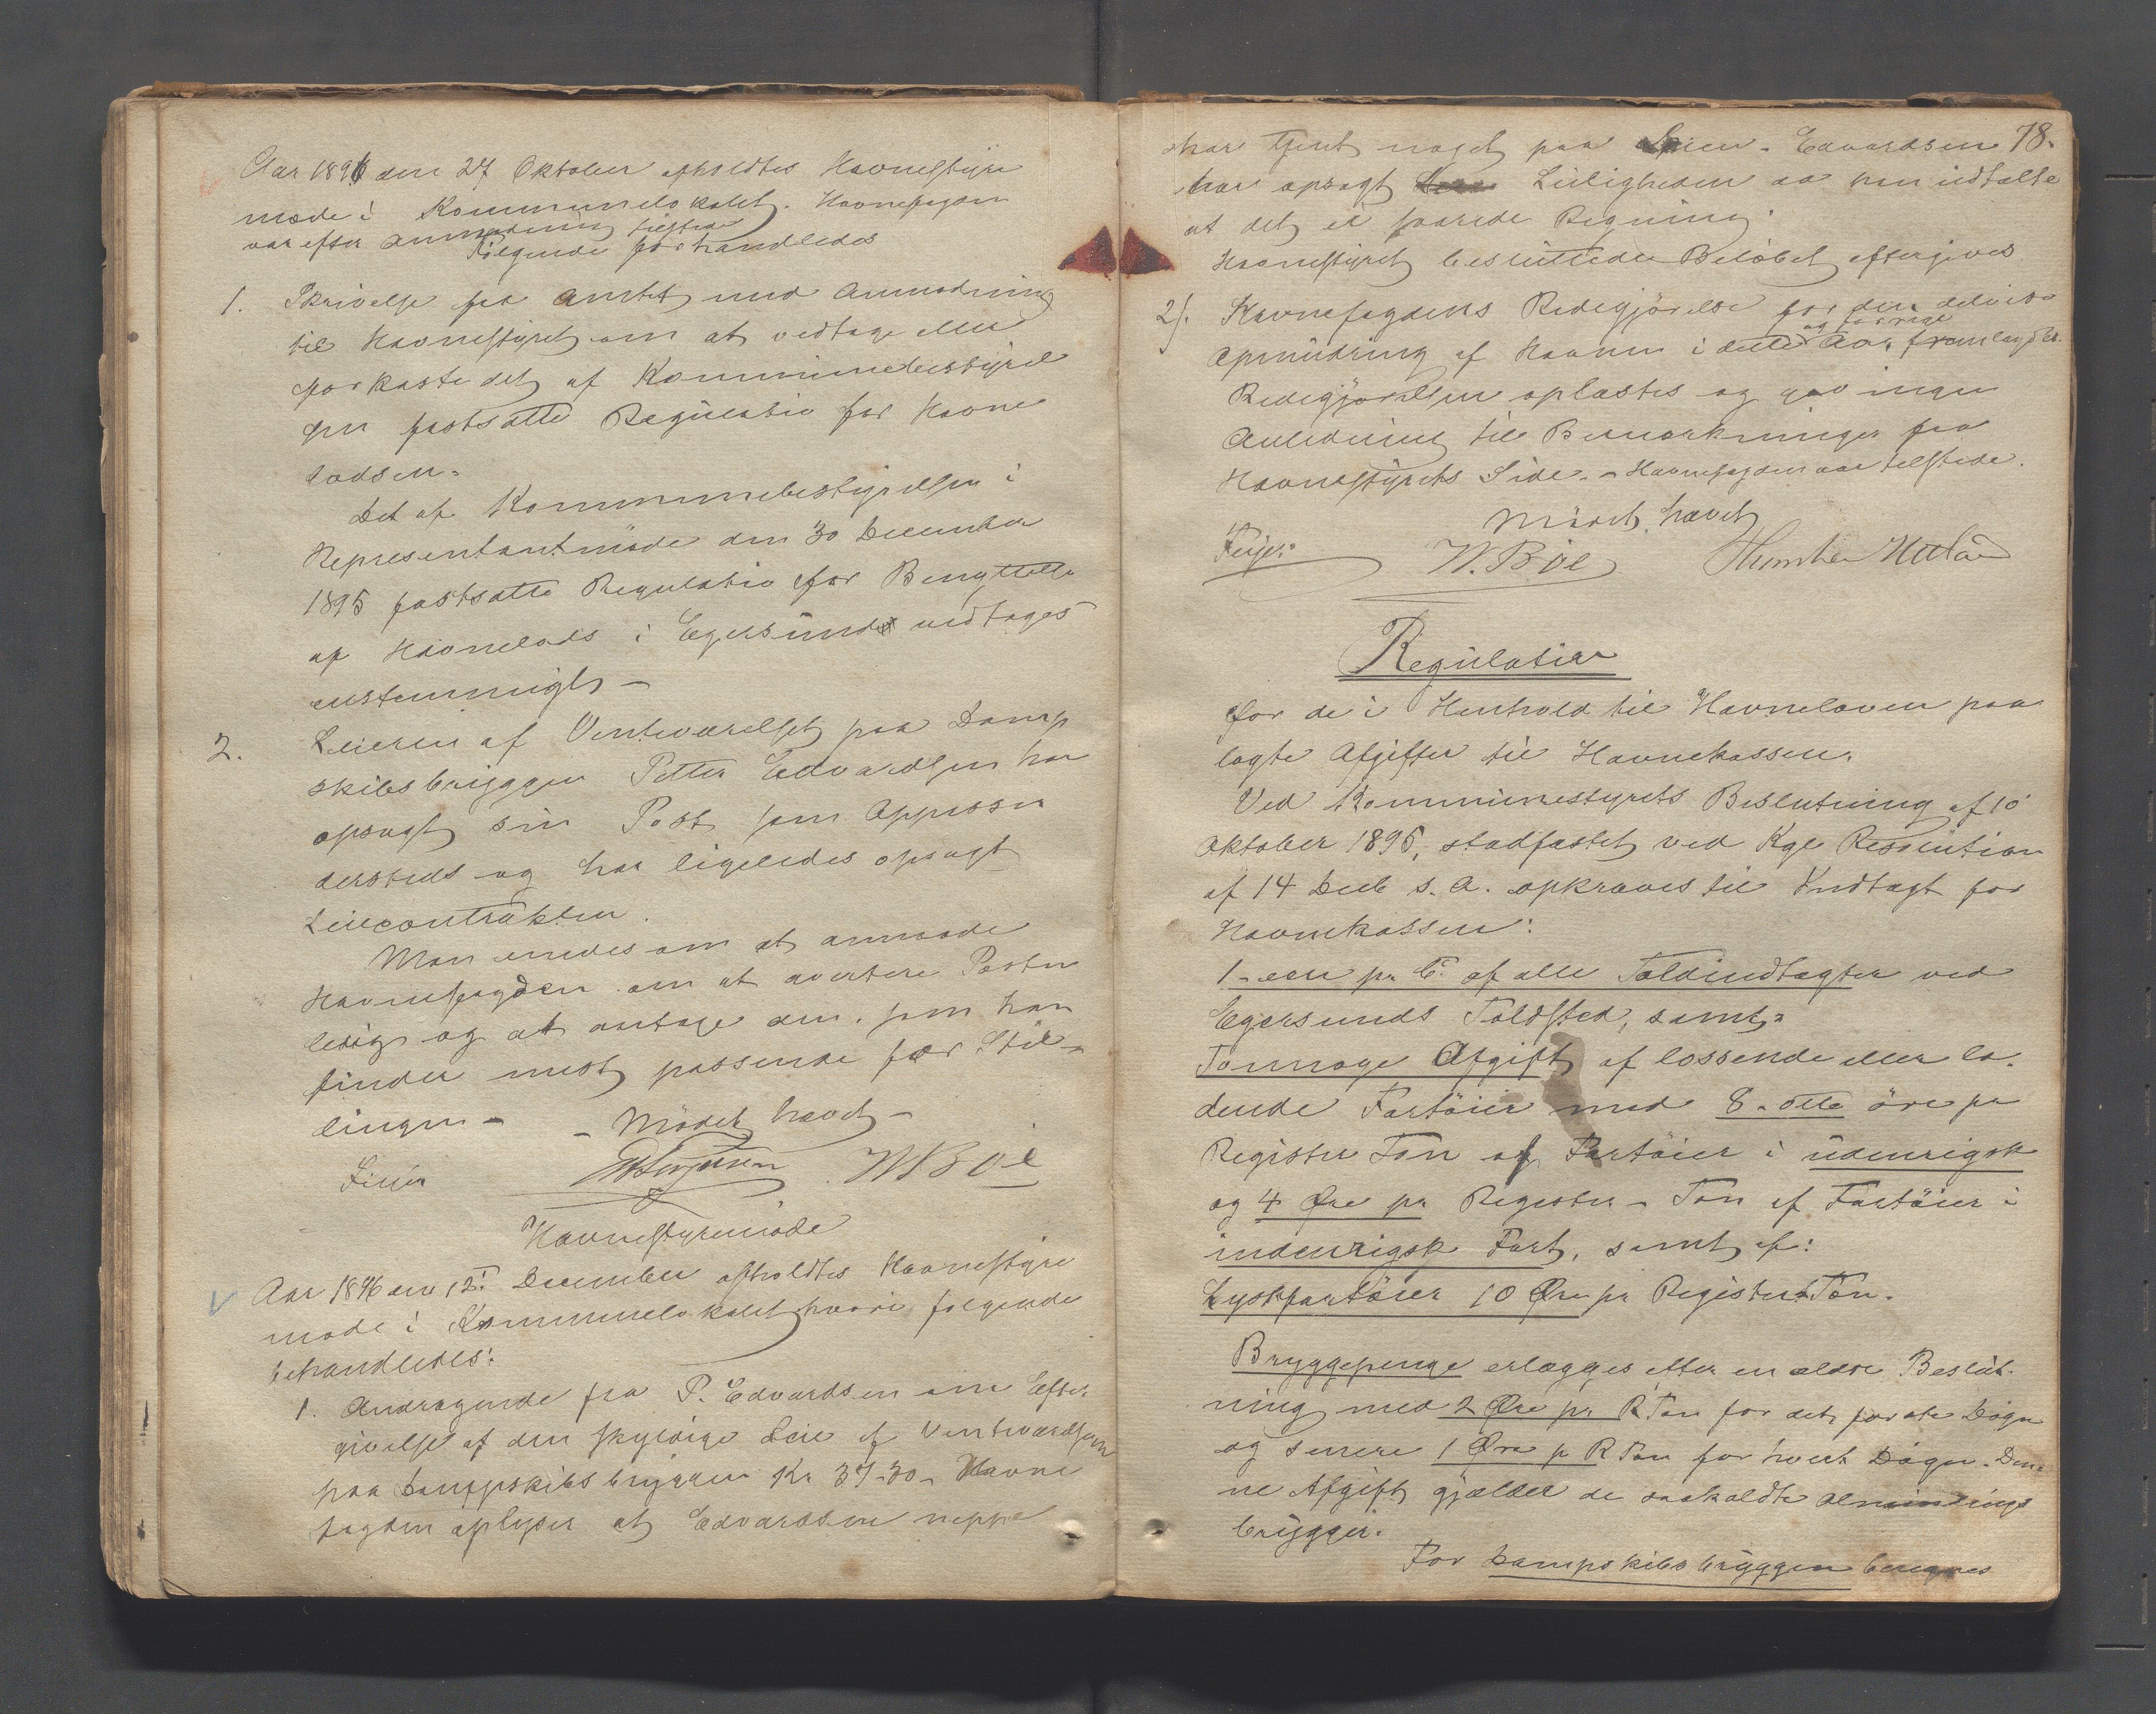 Aar 1896 den 27 Oktober afholdtes Havnestyre
møde i Kommunelokalet. Havnefogden
var efter Anmodning tilstede
Følgende forhandledes
1. Skrivelse fra Amtet med Anmodning
til Havnestyret om at vedtage eller
forkaste det af Kommunebestyrel
sen fastsatte Regulativ for Havne
lodsen.
Det af Kommunebestyrelsen i
Representantmøde den 30 December
1895 fastsatte Regulativ for Benyttelse
af Havnelods i Egersund vedtages
enstemmigt -
2. Leieren af Venteværelset paa Damp
skibsbryggen Petter Edvardsen har
opsagt sin Post som Oppasser
dersteds og har ligeledes opsagt
Leiecontrakten.
Man enedes om at anmode
Havnefogden om at avertere Posten
ledig og at antage den, som han
finder mest passende for Stil-
lingen - - Mødet hævet -
W Böe
Havnestyremøde
Aar 1896 den 12. December afholdtes Havnestyre
møde i Kommunelokalet hvori følgende
behandledes:
1. Andragende fra P. Edvardsen om Efter
givelse af den skyldige Leie af Venteværelserne
paa Dampskibsbryggen Kr 37-30 - Havne
fogden oplyser at Edvardsen neppe
78.
har tjent noget paa Leien. Edvardsen
har opsagt Leiligheden og han udtalte
at det er Regning.
Havnestyret besluttede Beløbet eftergives
2). Havnefogdens Redegjörelse for den delvise
og forrige
Opmudring af Havnen i dette Aar fremlagdes.
Redegjørelsen oplæstes og gav ingen
Anledning til Bemærkninger fra
Havnestyrets Side. - Havnefogden var tilstede.
Mødet hævet
Feyer W. Böe
Regulativ
for de i Henhold til Havneloven paa
lagte Afgifter til Havnekassen.
Ved Kommunestyrets Beslutning af 10
Oktober 1895, stadfæstet ved Kgl Resolution
af 14 Decb s. A. opkræves til Indtægt for
Havnekassen:
1 - een pr Ct. af alle Toldindtægter ved
Egersunds Toldsted, samt
Tonnage Afgift af lossende eller la-
dende Fartöier med 8 - otte öre pr
Register Ton af Fartöier i udenrigsk
og 4 Øre pr Register - Ton af Fartöier i
indenrigsk Fart, samt af:
Lystfartöier 10 Øre pr Register Ton.
Bryggepenge erlægges efter en ældre Beslut-
ning med 2 Øre pr R Ton for det første Døgn
og senere 1 Øre p R Ton for hvert Døgn. Den-
ne Afgift gjælder de saakaldte Almindings
brygger.
For Dampskibsbryggen beregnes